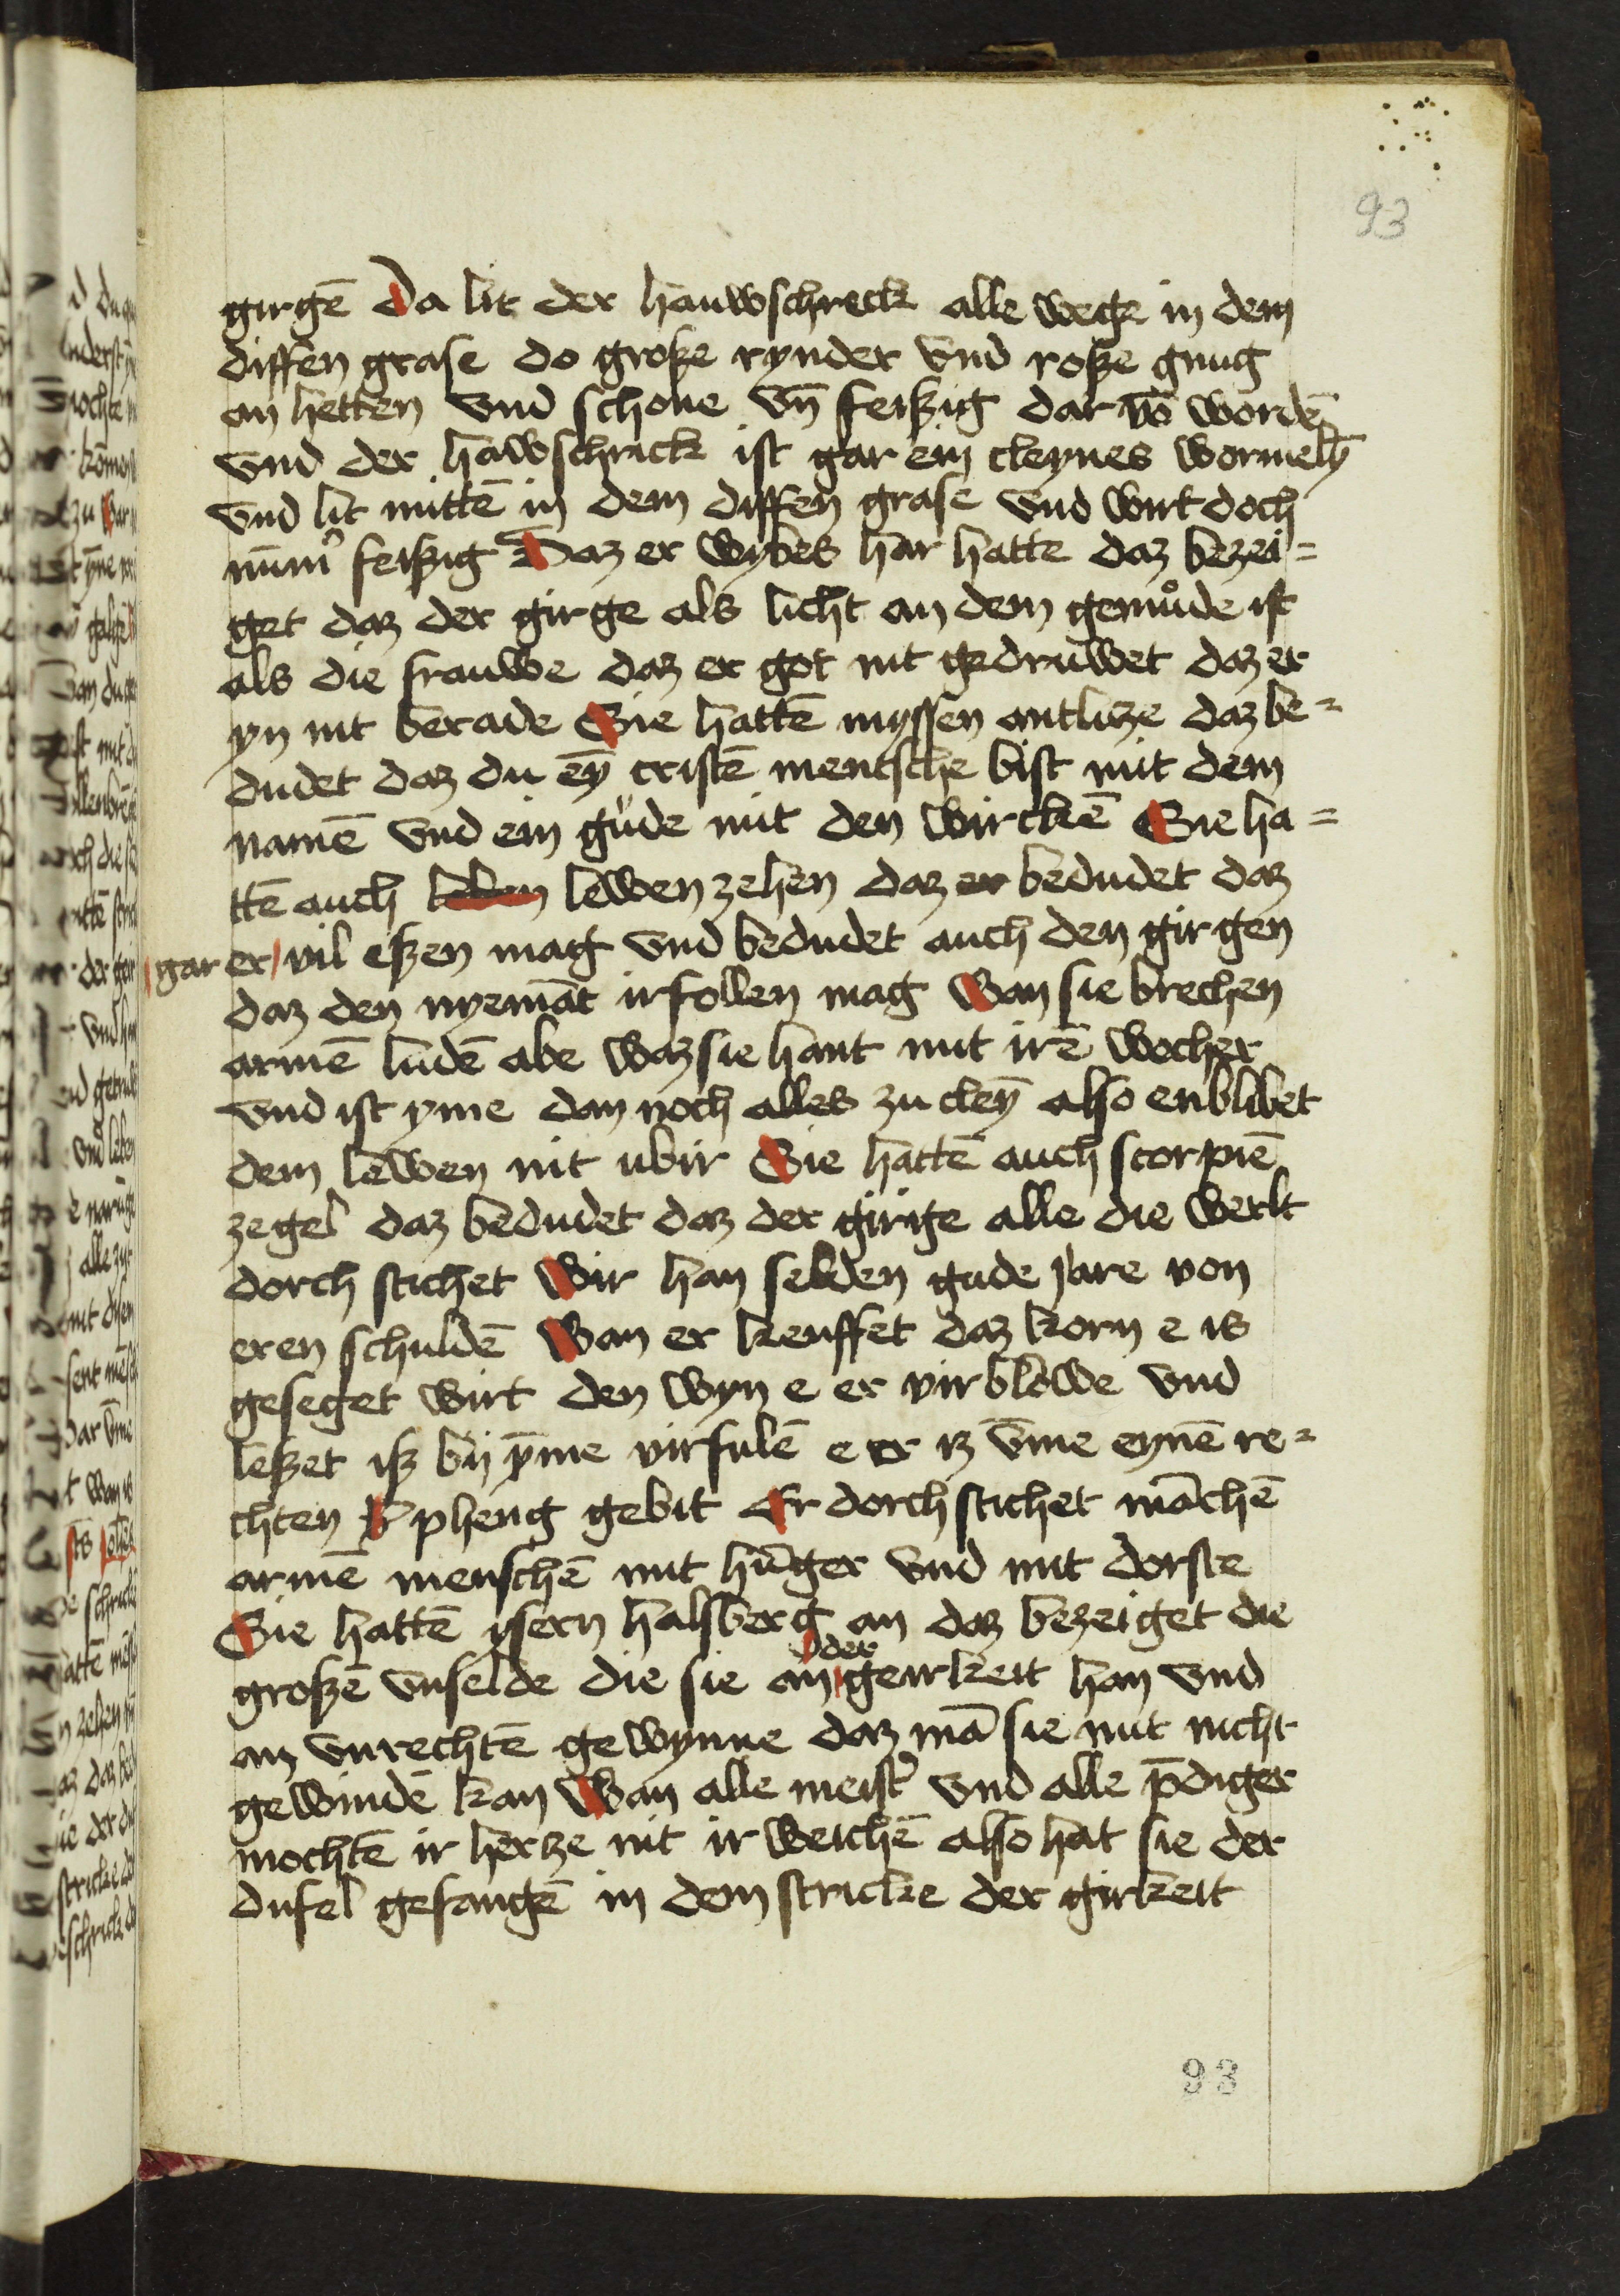 93
girgē Da lit der hauwschreck alle wege in dem
diffen grase do große rynder vnd roße gnug
an hetten vnd schone vn̄ feißig dar vō wordē
vnd der hawschrick ist gar ein cleynes wormelī
vnd lit mittē in dem diffen grase vnd wirt doch
nūm̄ feißig Daz er wybes har hatte daz bezei=
get daz der girge als licht an dem gemuͦde ist
als die frauwe daz er got nit gedruwet daz er
yn nit berade Sie hattē myssen antlicze daz be=
dudet daz du eȳ cristē mentsche bist mit dem
namē vnd ein gude mit den wirckē Sie ha=
ttē auch leben lewen zehen daz er bedudet daz
gar er vil eßen mag vnd bedudet auch den girgen
daz den nyemāt irfollen mag Wan sie brechen
armē ludē abe waz sie hant mit irē wocher
vnd ist yme dan noch alles zu cleȳ also enblibet
dem lewen nit ubir Sie hattē auch scorpiē
zegel daz bedudet daz der girige alle die werlt
dorch stichet Wir han selden gude jare von
eren schuldē Wan er keuffet daz korn e is
geseget wirt den wyn e er virblowe vnd
leßet iß by ȳme virfulē e er iz vm̄e eynē re=
chten pheng gebit Er dorch stichet māchē
armē menschē mit hūger vnd mit dorste
Sie hattē ysern halsberg an daz bezeiget die
der
großē vnselde die sie an geirkeit han vnd
an vnrechtē gewynne daz mā sie mit nicht
gewindē kan Wan alle meist̄ vnd alle p̄diger
mochtē ir hercze nit ir weichē also hat sie der
dufel gefangē in dem stricke der girkeit
93